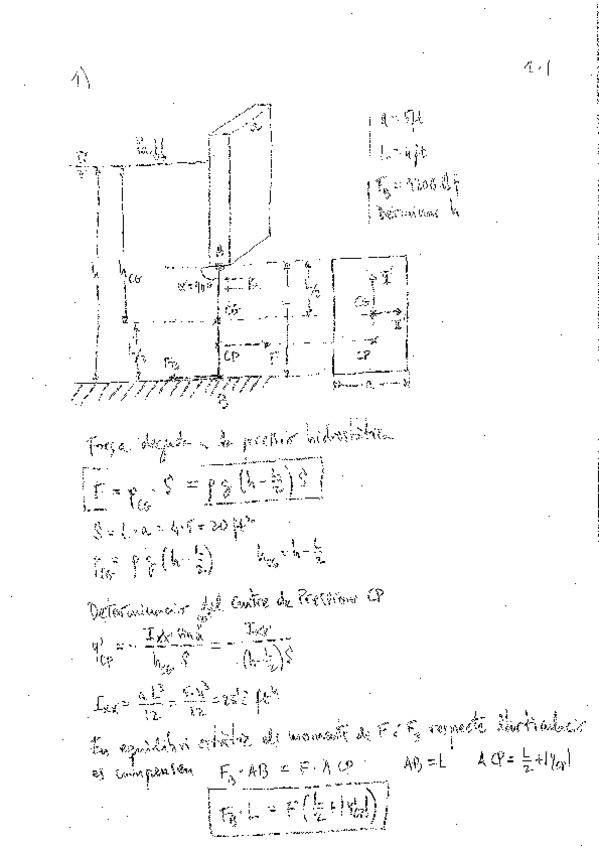 1)
1.1
a = 5 ft
L = 4 ft
Determinar h
h
h_CG
L/2
α = 90°
CG
CP
F
B
L/2
CG
CP
a
Força deguda a la pressió hidrostàtica
F = p_CG · S = ρ g (h - L/2) S
S = L · a = 4 · 5 = 20 ft²
p_CG = ρ g (h - L/2) h_CG = h - L/2
Determinació del centre de Pressions CP
y'_CP = - I_xx' sin α / h_CG S = - I_xx' / (h - L/2) S
I_xx' = a L³ / 12 = 5 · 4³ / 12 = ft⁴
En equilibri estàtic els moments de F i F_B respecte l'articulació
es compensen F_B · AB = F · A CP AB = L A CP = L/2 + |y'_CP|
F_B · L = F (L/2 + |y'_CP|)